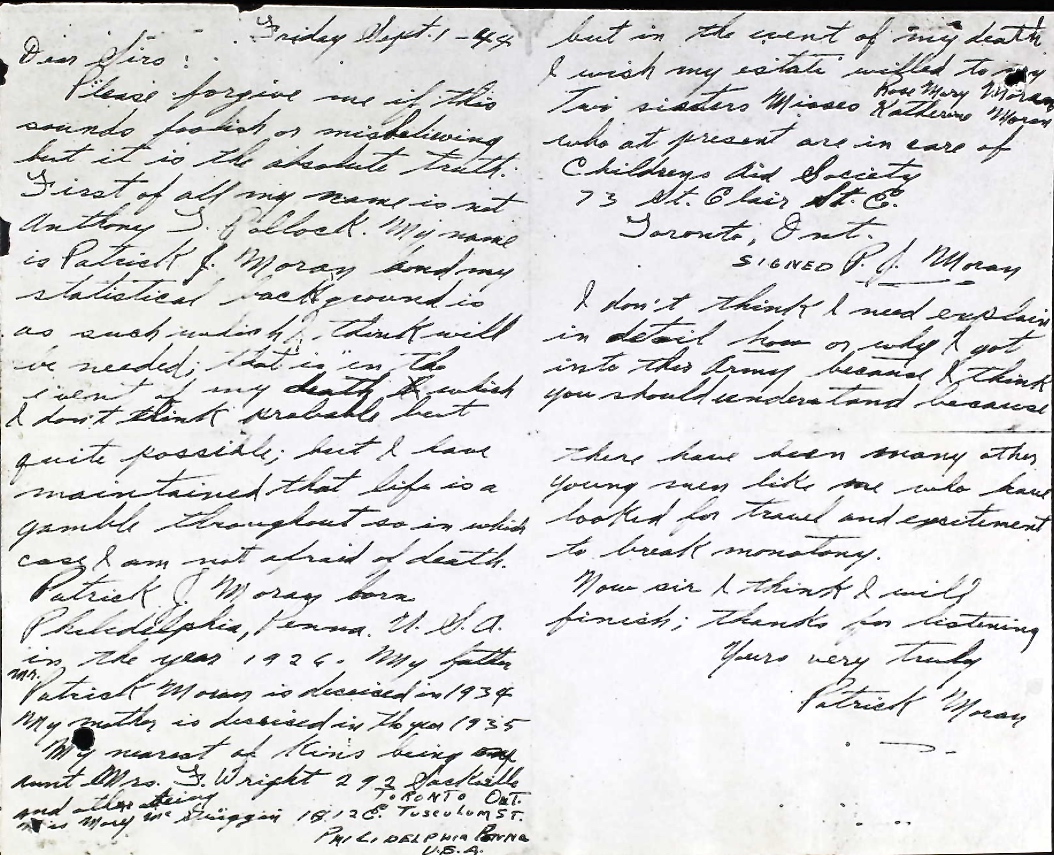 Friday Sept. 1 - 44
Dear Sirs:
Please forgive me if this
sounds foolish or misbelieving
but it is the absolute truth.
First of all my name is not
Anthony F. Pollock. My name
is Patrick J. Moran and my
statistical background is
as such which I think will
be needed; that is in the
event of my death which
I don't think probable but
quite possible; but I have
maintained that life is a
gamble throughout so in which
case I am not afraid of death.
Patrick J Moran born
Philidelphia, Penna. U.S.A.
in the year 1926. My father
Mr.
Patrick Moran is deceised in 1934
My mother is deceised in the year 1935
My nearest of kins being
aunt Mrs. F. Wright 292 Sackville
TORONTO ONT.
and other being
Miss Mary 1812 E. TUSCULUM ST.
PHILIDELPHIA PENNA
U.S.A.
but in the event of my death
I wish my estate willed to my
Two sisters Misses Rose Mary Moran
Katherine Moran
who at present are in care of
Childrens Aid Society
73 St. Clair St. E.
Toronto, Ont.
SIGNED P. J. Moran
I don't think I need explain
in detail how or why I got
into this Army because I think
you should understand because
there have been many other
young men like me who have
looked for travel and excitement
to break monotony.
Now sir I think I will
finish; thanks for listening
Yours very truly
Patrick Moran